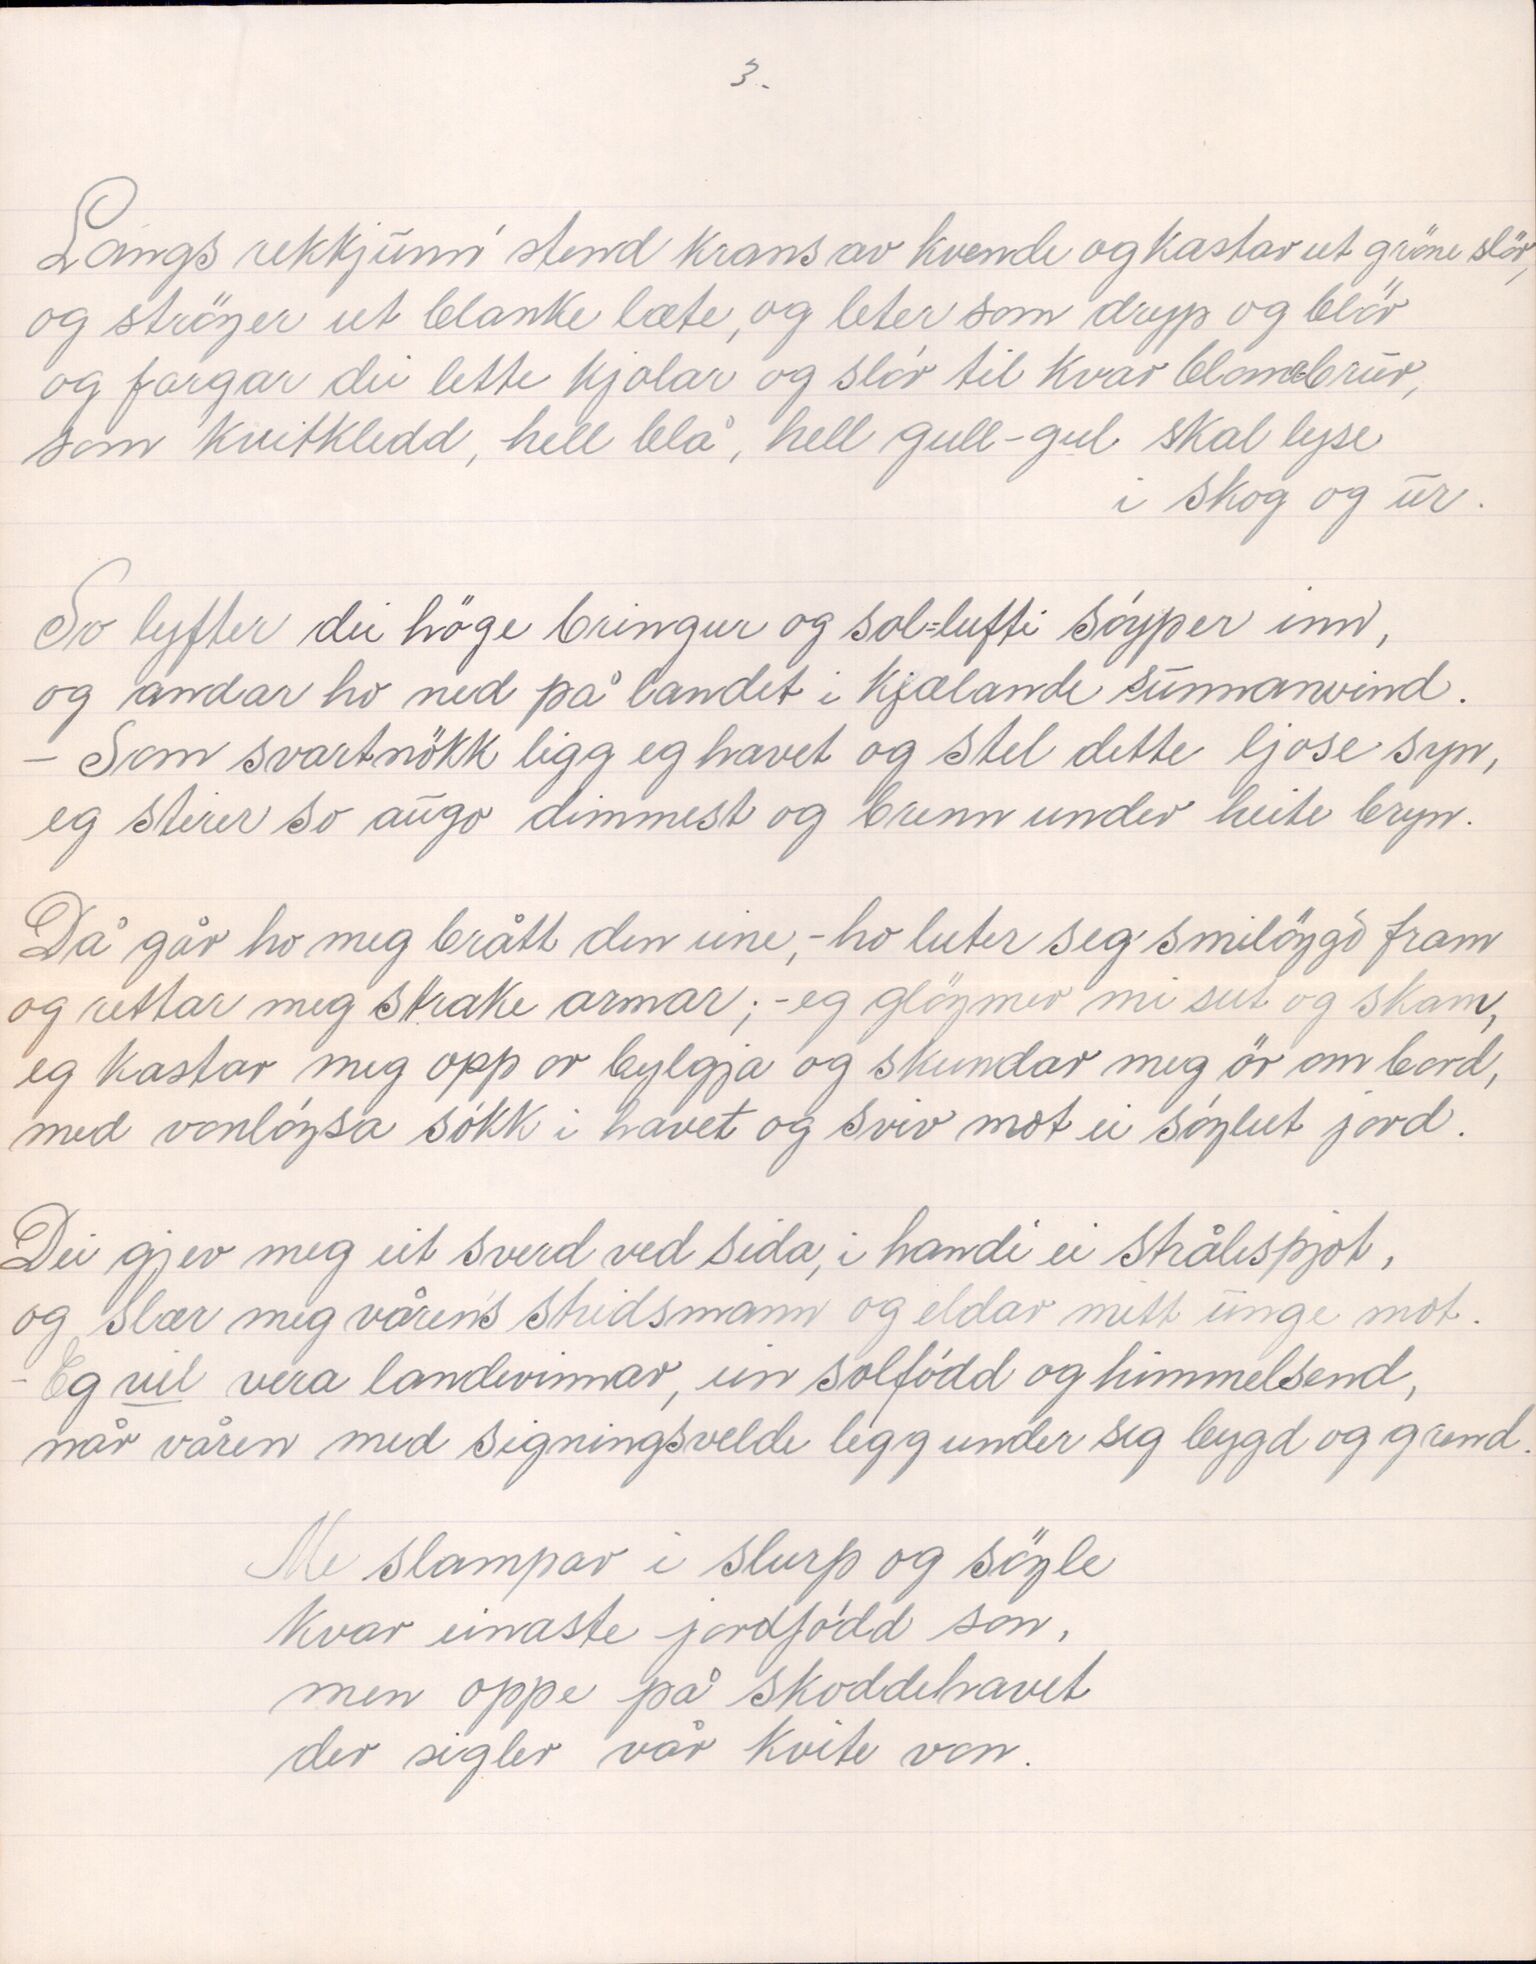 3.
Langs rekkjunn' stend krans av kvende og kastar ut gröne slör,
og ströyer ut blanke læte, og leter som dryp og blör
og fargar dei lette kjolar og slör til kvar blome-brur,
som kvitkledd, hell blå, hell gull-gul skal lyse
i skog og ur.
So lyfter dei höge bringur og sol-lufti söyper inn,
og andar ho ned på landet i kjælande sunnanvind.
- Som svartnökk ligg eg havet og stel dette ljose syn,
eg stirer so augo dimmest og brenn under heite bryn.
Då går ho meg brått den eine, - ho luter seg smilöygd fram
og rettar meg strake armar; - eg glöymer mi sut og skam,
eg kastar meg opp or bylgja og skundar meg ör om bord,
med vonlöysa sökk i havet og sviv mot ei söylut jord.
Dei gjev meg eit sverd ved sida, i handi ei strålespjot,
og slær meg vårens stridsmann og eldar mitt unge mot.
- Eg vil vera landevinnar, ein solfödd og himmelsend,
når våren med signingsvelde legg under seg bygd og grend.
Me slampar i slurp og söyle
kvar einaste jordfödd son,
men oppe på skoddehavet
der sigler vår kvite von.